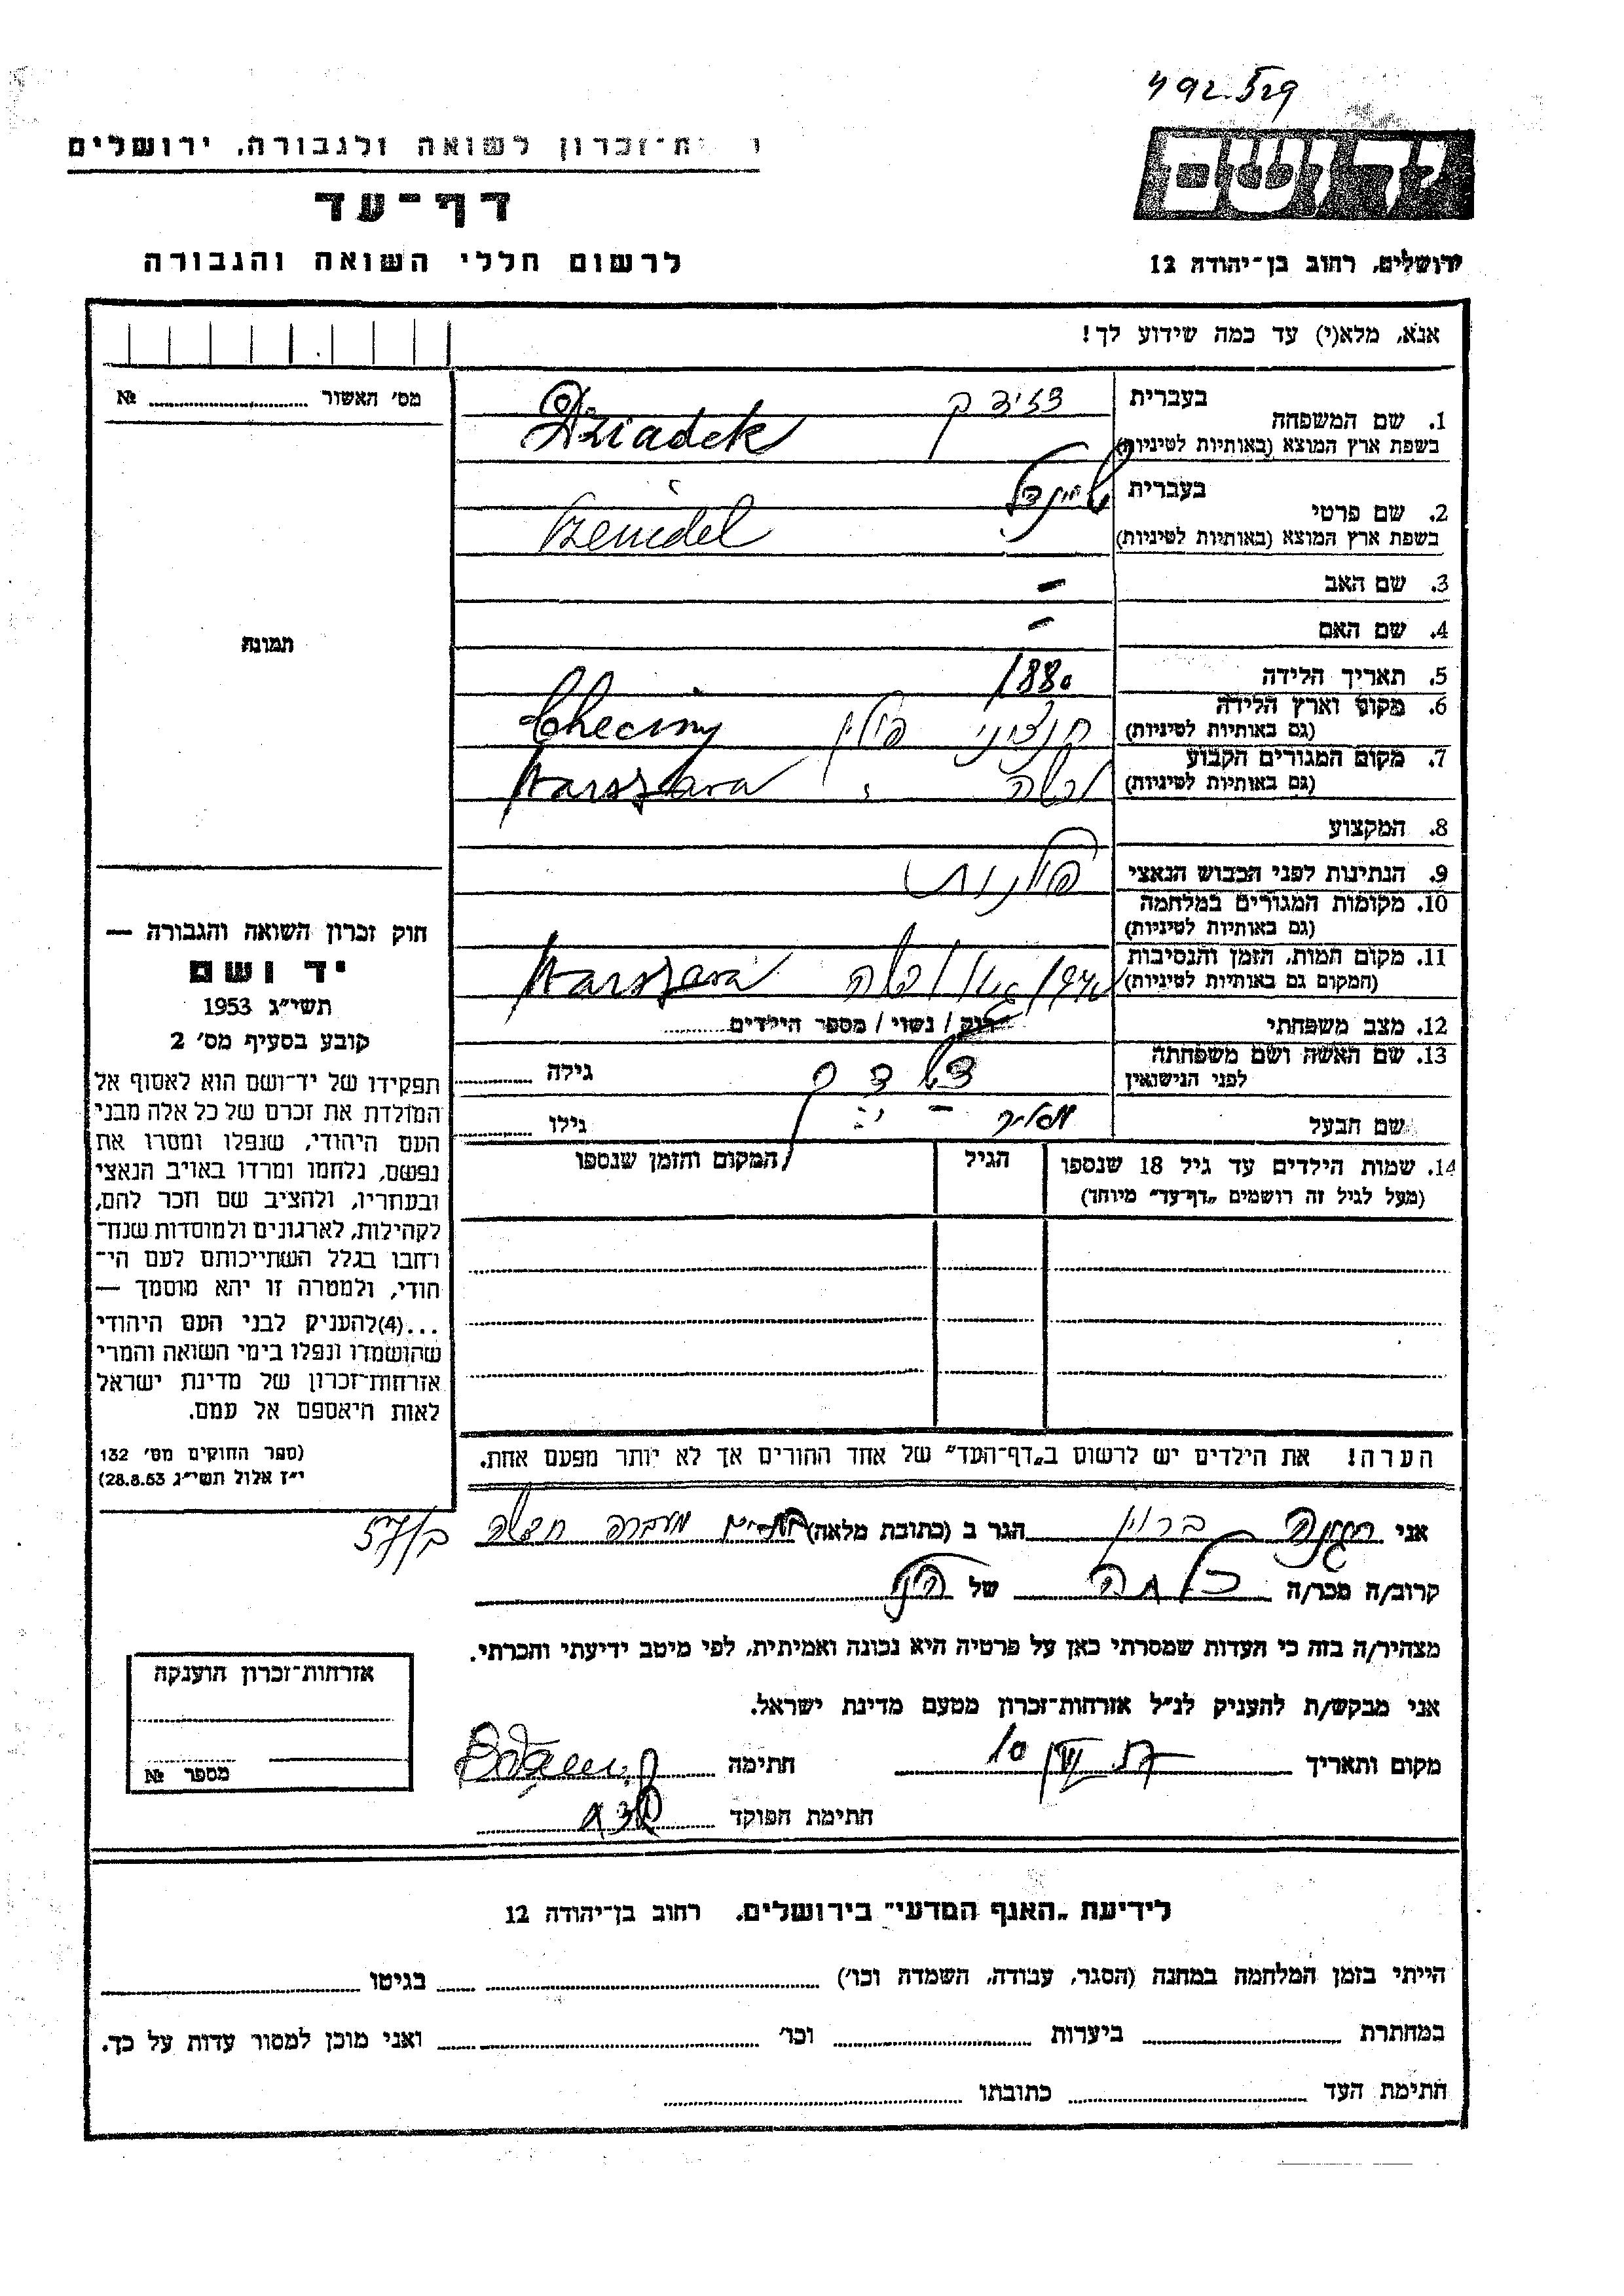 492.529
יד ושם
ת־זכרון לשואה ולגבורה, ירושלים
דף־עד
לרשום חללי השואה והגבורה
ירושלים, רחוב בן־יהודה 12
אנא, מלא(י) עד כמה שידוע לך!
מס' האשור № 
תמונה
1. שם המשפחה בעברית
בשפת ארץ המוצא (באותיות לטיניות) Dziadek
2. שם פרטי בעברית שיינדל
בשפת ארץ המוצא (באותיות לטיניות)
3. שם האב –
4. שם האם –
5. תאריך הלידה 1880
6. מקום וארץ הלידה
(גם באותיות לטיניות) פולין Checiny
7. מקום המגורים הקבוע
(גם באותיות לטיניות) ורשה Warszawa
8. המקצוע
9. הנתינות לפני הכבוש הנאצי פולנית
10. מקומות המגורים במלחמה
(גם באותיות לטיניות)
11. מקום המות, הזמן והנסיבות
(המקום גם באותיות לטיניות) ורשה Warszawa
12. מצב משפחתי רוק / נשוי / מספר הילדים
13. שם האשה ושם משפחתה
לפני הנישואין גילה
שם הבעל גילו
14. שמות הילדים עד גיל 18 שנספו הגיל המקום והזמן שנספו
(מעל לגיל זה רושמים „דף־עד" מיוחד)
הערה! את הילדים יש לרשום ב„דף־העד" של אחד ההורים אך לא יותר מפעם אחת.
חוק זכרון השואה והגבורה —
יד ושם
תשי"ג 1953
קובע בסעיף מס' 2
תפקידו של יד־ושם הוא לאסוף אל
המולדת את זכרם של כל אלה מבני
העם היהודי, שנפלו ומסרו את
נפשם, נלחמו ומרדו באויב הנאצי
ובעחריו, ולהציב שם וזכר להם,
לקהילות, לארגונים ולמוסדות שנח־
רחבו בגלל השתייכותם לעם הי־
הודי, ולמטרה זו יהא מוסמך —
...(4)להעניק לבני העם היהודי
שהושמדו ונפלו בימי השואה והמרי
אזרחות־זכרון של מדינת ישראל
לאות היאספם אל עמם.
(ספר החוקים מס' 132
י"ז אלול תשי"ג 28.8.53)
אני ברוין הגר ב (כתובת מלאה) מעברה חדשה
קרוב/ה מכר/ה כלתה של הנ"ל
מצהיר/ה בזה כי העדות שמסרתי כאן על פרטיה היא נכונה ואמיתית, לפי מיטב ידיעתי והכרתי.
אני מבקש/ת להעניק לנ"ל אזרחות־זכרון מטעם מדינת ישראל.
מקום ותאריך חתימה
חתימת הפוקד
אזרחות־זכרון הוענקה
מספר №
לידיעת „האגף המדעי" בירושלים, רחוב בן־יהודה 12
הייתי בזמן המלחמה במחנה (הסגר, עבודה, השמדה וכו') בגיטו
במחתרת ביערות וכו' ואני מוכן למסור עדות על כך.
חתימת העד כתובתו